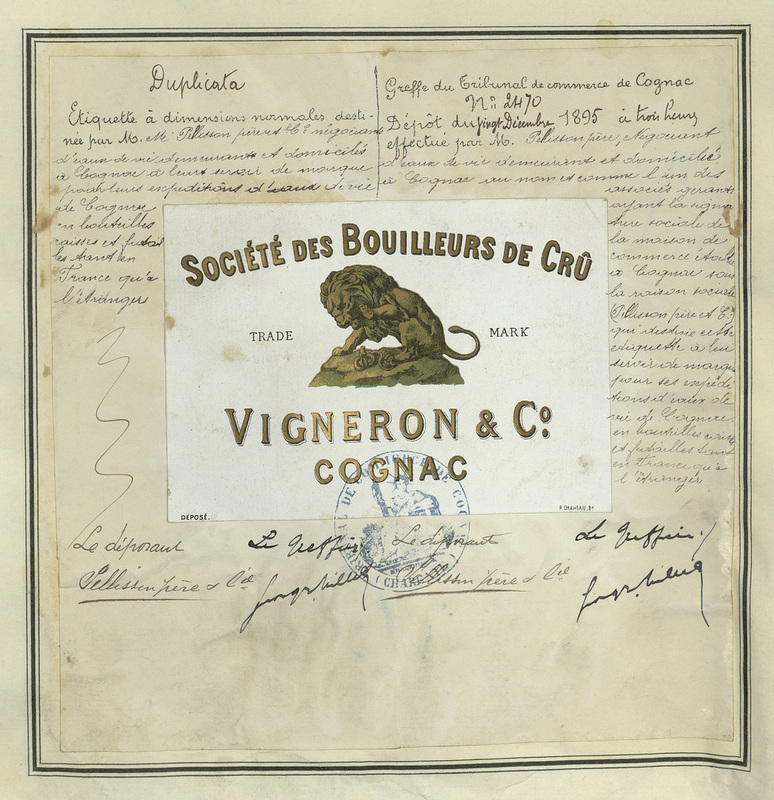 Duplicata
Etiquette à dimensions normales desti-
née par M. M. Pellisson père et Cie négociants
d'eaux de vie demeurants et domiciliés
à Cognac à leurs servir de marque
pour leurs expéditions d'eaux de vie
de Cognac
en bouteilles
caisses et futailles
tant en
France qu'à
l'étranger
Greffe du Tribunal de commerce de Cognac
No 2470
Dépôt du vingt Décembre 1895 à trois heures
effectué par M. Pellisson père, Négociant
d'eaux de vie demeurant et domicilié
à Cognac au nom et comme l'un des
associés gérants
ayant la signa
ture sociale de
la maison de
commerce établie
à Cognac sous
la raison sociale
Pellisson père et Cie
qui destine cette
étiquette à leur
servir de marque
pour ses expédi
tions d'eaux de
vie de Cognac
en bouteilles caisses
et futailles tant
en France qu'à
l'étranger
SOCIÉTÉ DES BOUILLEURS DE CRÛ
TRADE MARK
VIGNERON & Co
COGNAC
DÉPOSÉ.
Le déposant
Pellisson père & Cie
Le Greffier
Le déposant
Pellisson père & Cie
Le Greffier